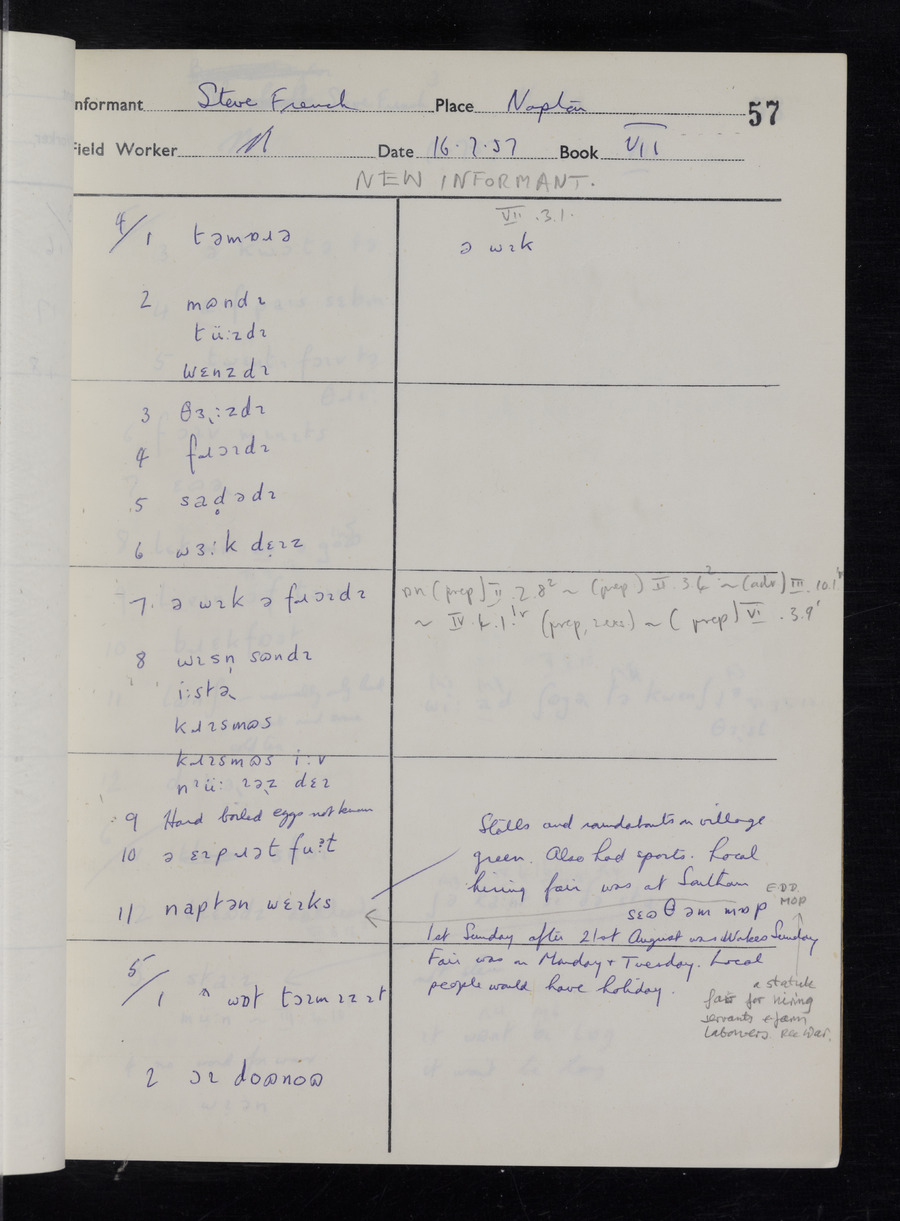 Informant Steve French Place Napton 57
Field Worker Date 16.7.57 Book VII
NEW INFORMANT.
4/1 təmɒɹə
VII .3.1.
ə wɪk
2 mɷndɪ
tü:zdɪ
wɛnzdɪ
3 θɜ˞:zdɪ
4 fɹɔɪdɪ
5 sad̥ədɪ
6 wɜ:k dɛ̣ɪz
7. ə wɪk ə fɹɔɪdɪ
ɒn (prep) II .2.8² ~ (prep) II .3.6² ~ (adv) III .10.1
~ IV .4.1 (prep, ) ~ (prep) VI .3.9¹
8 wɪsn̩ sɷndɪ
i:stə˞
kɹɪsmɷs
kɹɪsmɷs i:v
nɪü: ɪə˞z dɛɪ
9 Hard boiled eggs not known
10 ə ɛɪpɹət fu:ʔt
11 naptən wɛɪks
Stalls and roundabouts on village
green. Also had sports. Local
hiring fair was at Southam
sɛɷðəm mɒp
E.D.D.
MOP
1st Sunday after 21st August was Wakes Sunday
Fair was on Monday + Tuesday. Local
people would have holiday.
a statute
fair for hiring
servants & farm
labourers. Rec War.
5/1 ^ wɒt tɔɪm ɪz ɪt
2 ɔɪ doɷnoɷ